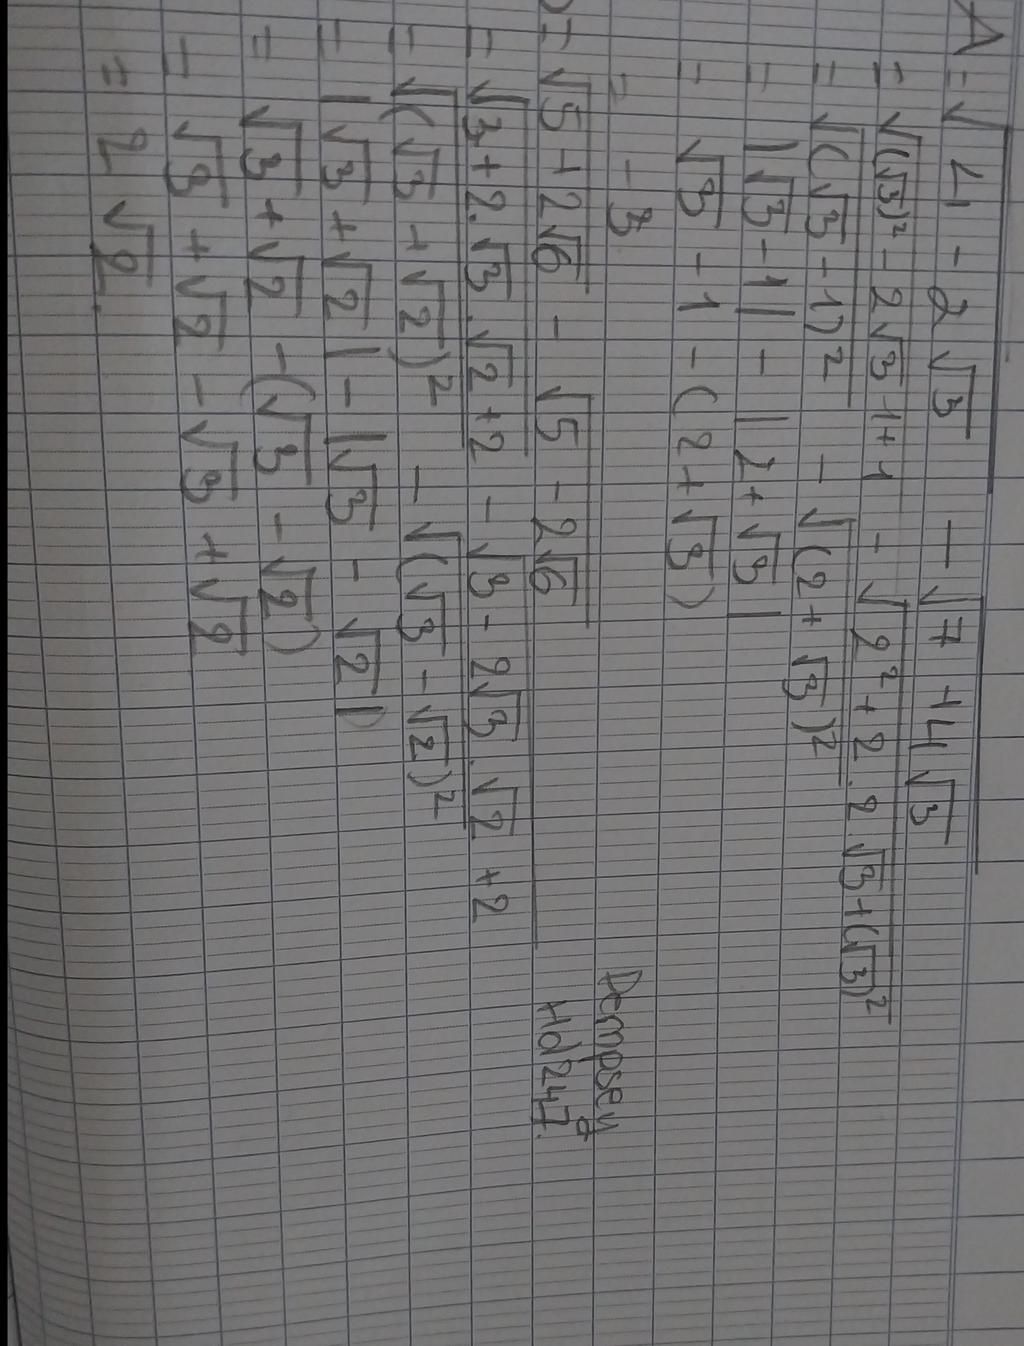 A = √4 - 2√3 - √7 + 4√3
= √(√3)² - 2√3·1 + 1 - √2² + 2.2.√3 + (√3)²
= √(√3 - 1)² - √(2 + √3)²
= |√3 - 1| - |2 + √3|
= √3 - 1 - (2 + √3)
= -3
= √5 + 2√6 - √5 - 2√6
= √3 + 2.√3.√2 + 2 - √3 - 2√3.√2 + 2
= √(√3 + √2)² - √(√3 - √2)²
= |√3 + √2| - |√3 - √2|
= √3 + √2 - (√3 - √2)
= √3 + √2 - √3 + √2
= 2√2.
Dempsey
Hd247.